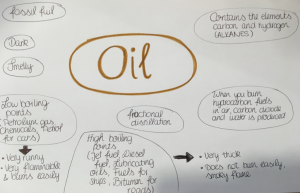 Fossil fuel
Dark
Smelly
Oil
Contains the elements
carbon and hydrogen
(ALKANES)
Low boiling
points
(Petroleum gas,
Chemicals, Petrol
for cars)
→ Very runny
→ Very flammable
& burns easily
fractional
distillation
High boiling
points
(Jet fuel, Diesel
fuel, Lubricating
oils, Fuels for
ships, Bitumen for
roads)
When you burn
hydrocarbon fuels
in air, carbon dioxide
and water is produced
• Very thick
• Does not burn easily,
smoky flame